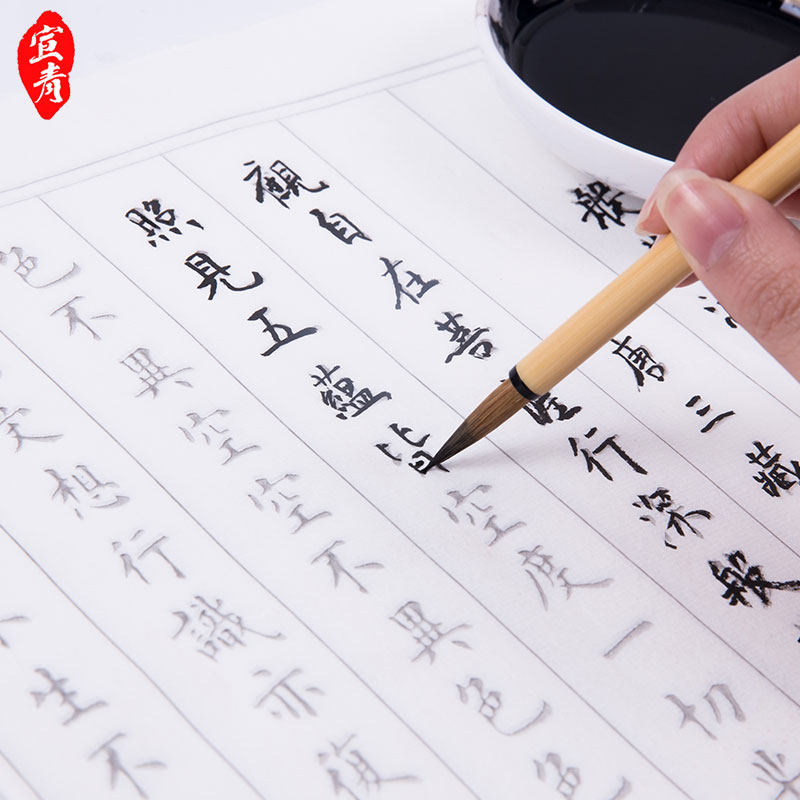 宣青
般
唐三藏
觀自在菩行深般
照見五蘊皆空度一切
色不異空空不異色色
受想行識亦復
生不